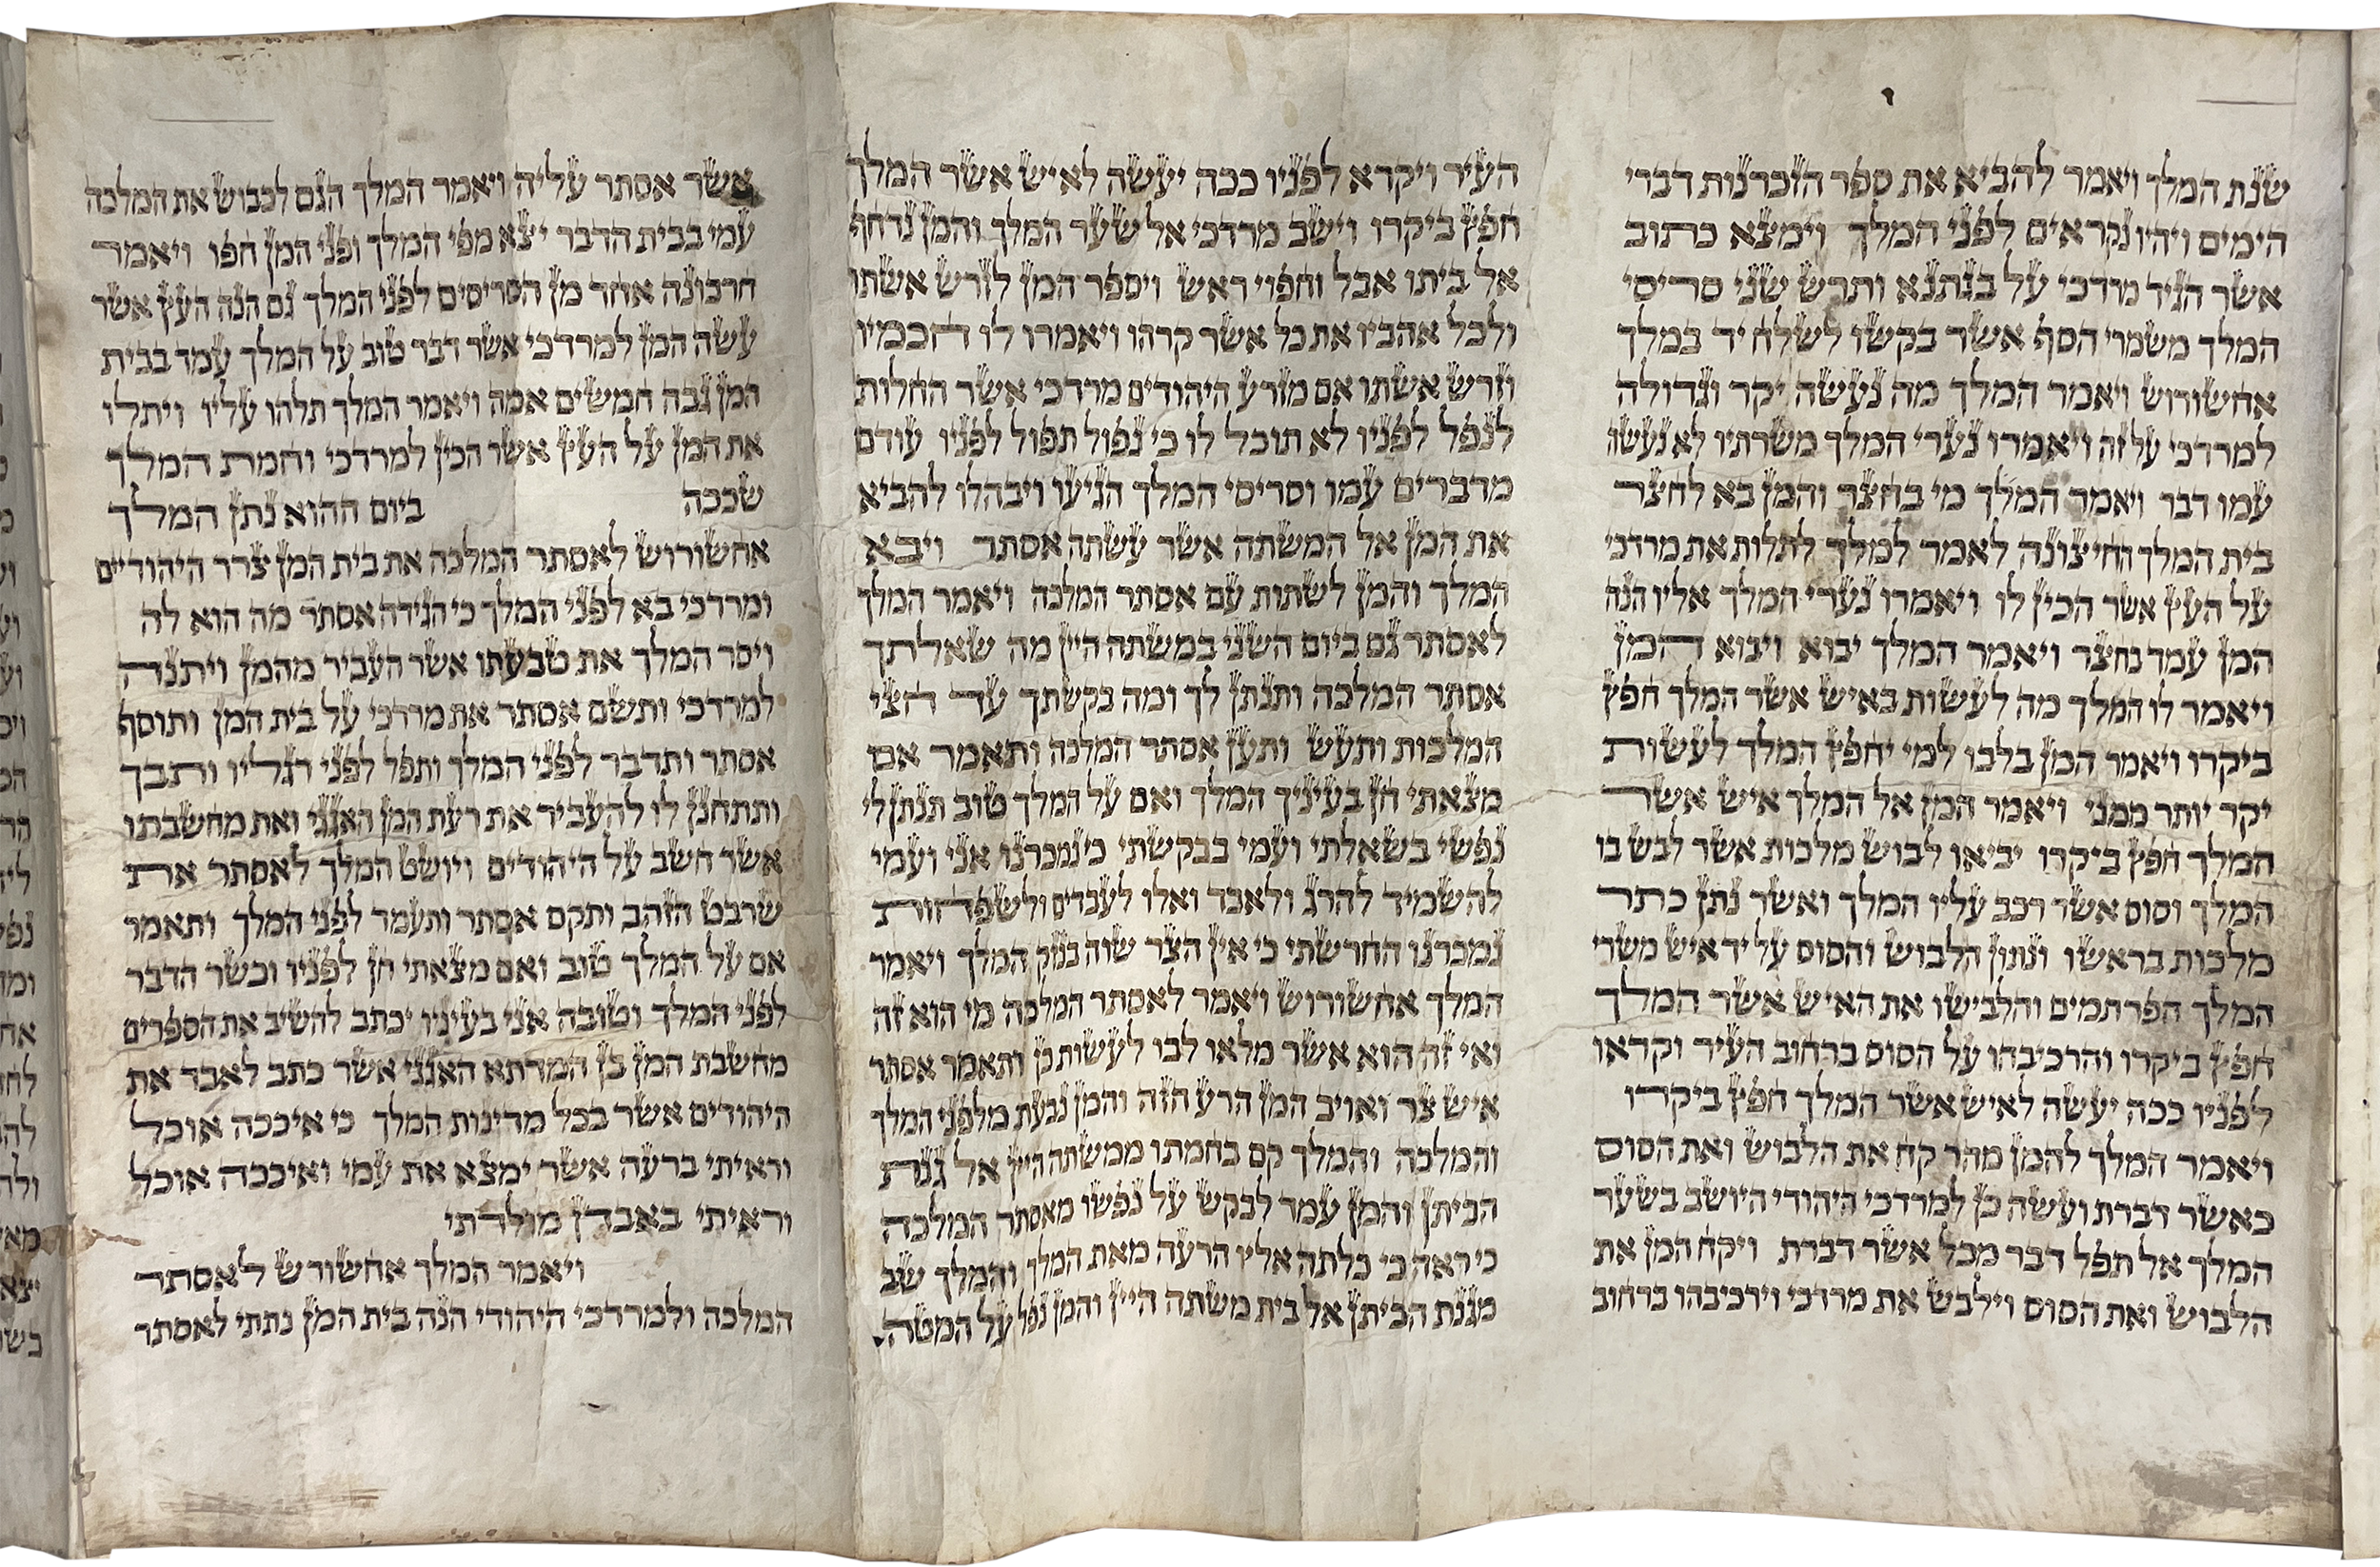 שנת המלך ויאמר להביא את ספר הזכרנות דברי
הימים ויהיו נקראים לפני המלך וימצא כתוב
אשר הגיד מרדכי על בגתנא ותרש שני סריסי
המלך משמרי הסף אשר בקשו לשלח יד במלך
אחשורוש ויאמר המלך מה נעשה יקר וגדולה
למרדכי על זה ויאמרו נערי המלך משרתיו לא נעשה
עמו דבר ויאמר המלך מי בחצר והמן בא לחצר
בית המלך החיצונה לאמר למלך לתלות את מרדכי
על העץ אשר הכין לו ויאמרו נערי המלך אליו הנה
המן עמד בחצר ויאמר המלך יבוא ויבוא המן
ויאמר לו המלך מה לעשות באיש אשר המלך חפץ
ביקרו ויאמר המן בלבו למי יחפץ המלך לעשות
יקר יותר ממני ויאמר המן אל המלך איש אשר
המלך חפץ ביקרו יביאו לבוש מלכות אשר לבש בו
המלך וסוס אשר רכב עליו המלך ואשר נתן כתר
מלכות בראשו ונתון הלבוש והסוס על יד איש משרי
המלך הפרתמים והלבישו את האיש אשר המלך
חפץ ביקרו והרכיבהו על הסוס ברחוב העיר וקראו
לפניו ככה יעשה לאיש אשר המלך חפץ ביקרו
ויאמר המלך להמן מהר קח את הלבוש ואת הסוס
כאשר דברת ועשה כן למרדכי היהודי היושב בשער
המלך אל תפל דבר מכל אשר דברת ויקח המן את
הלבוש ואת הסוס וילבש את מרדכי וירכיבהו ברחוב
העיר ויקרא לפניו ככה יעשה לאיש אשר המלך
חפץ ביקרו וישב מרדכי אל שער המלך והמן נדחף
אל ביתו אבל וחפוי ראש ויספר המן לזרש אשתו
ולכל אהביו את כל אשר קרהו ויאמרו לו חכמיו
וזרש אשתו אם מזרע היהודים מרדכי אשר החלות
לנפל לפניו לא תוכל לו כי נפול תפול לפניו עודם
מדברים עמו וסריסי המלך הגיעו ויבהלו להביא
את המן אל המשתה אשר עשתה אסתר ויבא
המלך והמן לשתות עם אסתר המלכה ויאמר המלך
לאסתר גם ביום השני במשתה היין מה שאלתך
אסתר המלכה ותנתן לך ומה בקשתך עד חצי
המלכות ותעש ותען אסתר המלכה ותאמר אם
מצאתי חן בעיניך המלך ואם על המלך טוב תנתן לי
נפשי בשאלתי ועמי בבקשתי כי נמכרנו אני ועמי
להשמיד להרג ולאבד ואלו לעבדים ולשפחות
נמכרנו החרשתי כי אין הצר שוה בנזק המלך ויאמר
המלך אחשורוש ויאמר לאסתר המלכה מי הוא זה
ואי זה הוא אשר מלאו לבו לעשות כן ותאמר אסתר
איש צר ואויב המן הרע הזה והמן נבעת מלפני המלך
והמלכה והמלך קם בחמתו ממשתה היין אל גנת
הביתן והמן עמד לבקש על נפשו מאסתר המלכה
כי ראה כי כלתה אליו הרעה מאת המלך והמלך שב
מגנת הביתן אל בית משתה היין והמן נפל על המטה
אשר אסתר עליה ויאמר המלך הגם לכבוש את המלכה
עמי בבית הדבר יצא מפי המלך ופני המן חפו ויאמר
חרבונה אחד מן הסריסים לפני המלך גם הנה העץ אשר
עשה המן למרדכי אשר דבר טוב על המלך עמד בבית
המן גבה חמשים אמה ויאמר המלך תלהו עליו ויתלו
את המן על העץ אשר הכין למרדכי וחמת המלך
שככה ביום ההוא נתן המלך
אחשורוש לאסתר המלכה את בית המן צרר היהודיים
ומרדכי בא לפני המלך כי הגידה אסתר מה הוא לה
ויסר המלך את טבעתו אשר העביר מהמן ויתנה
למרדכי ותשם אסתר את מרדכי על בית המן ותוסף
אסתר ותדבר לפני המלך ותפל לפני רגליו ותבך
ותתחנן לו להעביר את רעת המן האגגי ואת מחשבתו
אשר חשב על היהודים ויושט המלך לאסתר את
שרבט הזהב ותקם אסתר ותעמד לפני המלך ותאמר
אם על המלך טוב ואם מצאתי חן לפניו וכשר הדבר
לפני המלך וטובה אני בעיניו יכתב להשיב את הספרים
מחשבת המן בן המדתא האגגי אשר כתב לאבד את
היהודים אשר בכל מדינות המלך כי איככה אוכל
וראיתי ברעה אשר ימצא את עמי ואיככה אוכל
וראיתי באבדן מולדתי
ויאמר המלך אחשורש לאסתר
המלכה ולמרדכי היהודי הנה בית המן נתתי לאסתר